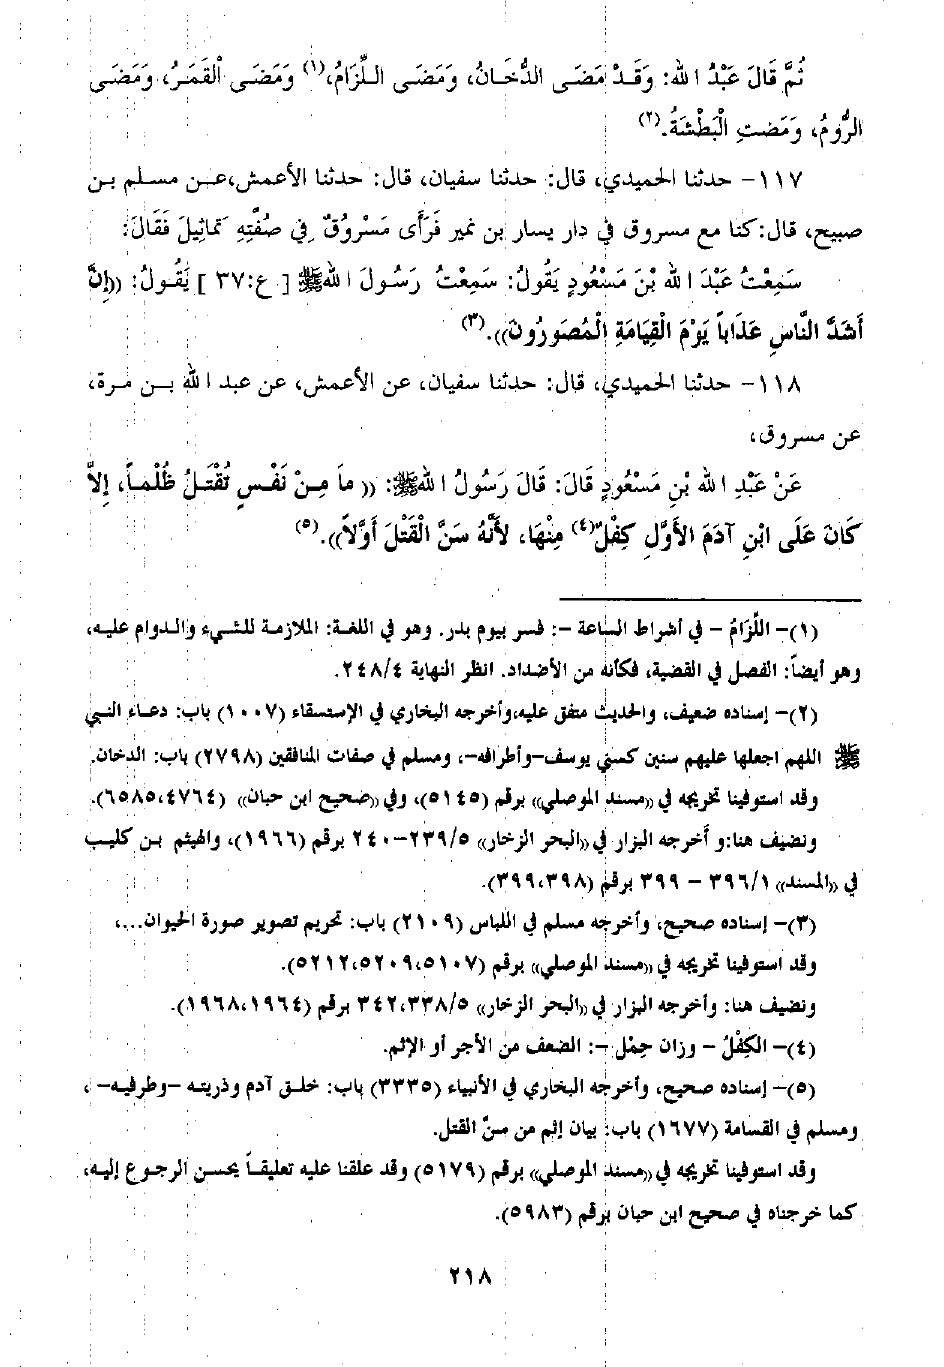 ثُمَّ قَالَ عَبْدُ الله: وَقَدْ مَضَى الدُّخَانُ، وَمَضَى اللِّزَامُ،(١) وَمَضَى الْقَمَرُ، وَمَضَى
الرُّومُ، وَمَضتِ الْبَطْشَةُ.(٢)
١١٧- حدثنا الحميدي، قال: حدثنا سفيان، قال: حدثنا الأعمش،عن مسلم بن
صبيح، قال:كنا مع مسروق في دار يسار بن نمير فَرَأَى مَسْرُوقٌ فِي صُفَّتِهِ تَمَاثِيلَ فَقَالَ:
سَمِعْتُ عَبْدَ الله بْنَ مَسْعُودٍ يَقُولُ: سَمِعْتُ رَسُولَ اللهﷺ [ ع:٣٧ ] يَقُولُ: ((إِنَّ
أَشَدَّ النَّاسِ عَذَاباً يَوْمَ الْقِيَامَةِ الْمُصَوِرُونَ)).(٣)
١١٨- حدثنا الحميدي، قال: حدثنا سفيان، عن الأعمش، عن عبد الله بن مرة،
عن مسروق،
عَنْ عَبْدِ الله بْنِ مَسْعُودٍ قَالَ: قَالَ رَسُولُ اللهﷺ: (( مَا مِنْ نَفْسٍ تُقْتَلُ ظُلْماً، إِلاَّ
كَانَ عَلَى ابْنِ آدَمَ الأَوَّلِ كِفْلٌ(٤) مِنْهَا، لأَنَّهُ سَنَّ الْقَتْلَ أَوَّلاً)).(٥)
(١)- اللِّزَامُ - في أشراط الساعة -: فسر بيوم بدر. وهو في اللغة: الملازمة للشيء والدوام عليه،
وهو أيضاً: الفصل في القضية، فكأنه من الأضداد. انظر النهاية ٢٤٨/٤.
(٢)- إسناده ضعيف، والحديث متفق عليه،وأخرجه البخاري في الإستسقاء (١٠٠٧) باب: دعاء النبي
ﷺ اللهم اجعلها عليهم سنين كسني يوسف-وأطرافه-، ومسلم في صفات المنافقين (٢٧٩٨) باب: الدخان.
وقد استوفينا تخريجه في ((مسند الموصلي)) برقم (٥١٤٥)، وفي ((صحيح ابن حبان)) (٦٥٨٥،٤٧٦٤).
ونضيف هنا:و أخرجه البزار في ((البحر الزخار)) ٢٣٩/٥-٢٤٠ برقم (١٩٦٦)، والهيثم بن كليب
في ((المسند)) ٣٩٦/١ - ٣٩٩ برقم (٣٩٩،٣٩٨).
(٣)- إسناده صحيح، وأخرجه مسلم في اللباس (٢١٠٩) باب: تحريم تصوير صورة الحيوان...،
وقد استوفينا تخريجه في ((مسند الموصلي)) برقم (٥٢١٢،٥٢٠٩،٥١٠٧).
ونضيف هنا: وأخرجه البزار في ((البحر الزخار)) ٣٤٢،٣٣٨/٥ برقم (١٩٦٨،١٩٦٤).
(٤)- الكِفْلُ - وزان حِمْل -: الضعف من الأجر أو الإثم.
(٥)- إسناده صحيح، وأخرجه البخاري في الأنبياء (٣٣٣٥) باب: خلق آدم وذريته -وطرفيه- ،
ومسلم في القسامة (١٦٧٧) باب: بيان إثم من سنَّ القتل.
وقد استوفينا تخريجه في ((مسند الموصلي)) برقم (٥١٧٩) وقد علقنا عليه تعليقاً يحسن الرجوع إليه،
كما خرجناه في صحيح ابن حبان برقم (٥٩٨٣).
٢١٨